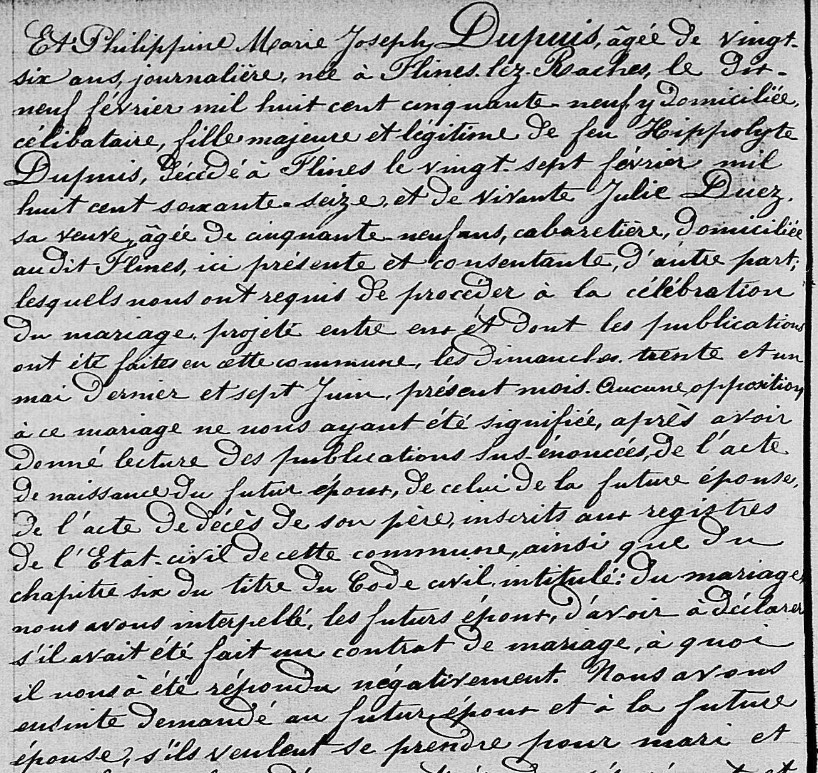 Et Philippine Marie Joseph Dupuis, âgée de vingt-
six ans, journalière, née à Flines-lez-Raches, le dix-
neuf février mil huit cent cinquante-neuf y domiciliée,
célibataire, fille majeure et légitime de feu Hippolyte
Dupuis, décédé à Flines le vingt-sept février mil
huit cent soixante-seize, et de vivante Julie Duez,
sa veuve, âgée de cinquante-neuf ans, cabaretière, domiciliée
audit Flines, ici présente et consentante, d'autre part;
lesquels nous ont requis de procéder à la célébration
du mariage projeté entre eux et dont les publications
ont été faites en cette commune, les dimanches trente et un
mai dernier et sept Juin, présent mois. Aucune opposition
à ce mariage ne nous ayant été signifiée, après avoir
donné lecture des publications sus énoncées, de l'acte
de naissance du futur époux, de celui de la future épouse,
de l'acte de décès de son père, inscrits aux registres
de l'Etat-civil de cette commune, ainsi que du
chapitre six du titre du Code civil, intitulé: du mariage,
nous avons interpellé, les futurs époux, d'avoir à déclarer
s'il avait été fait un contrat de mariage, à quoi
il nous a été répondu négativement. Nous avons
ensuite demandé au futur époux et à la future
épouse, s'ils veulent se prendre pour mari et